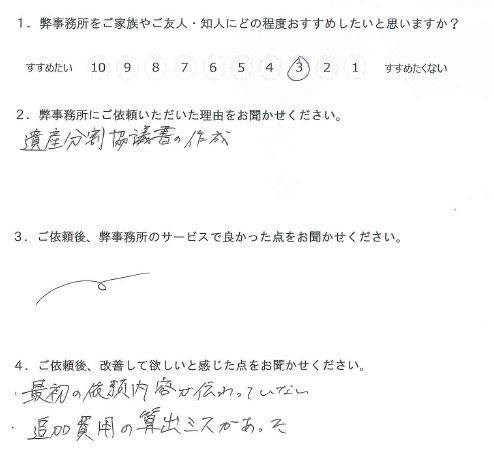 1．弊事務所をご家族やご友人・知人にどの程度おすすめしたいと思いますか？
すすめたい 10 9 8 7 6 5 4 3 2 1 すすめたくない
2．弊事務所にご依頼いただいた理由をお聞かせください。
遺産分割協議書の作成
3．ご依頼後、弊事務所のサービスで良かった点をお聞かせください。
4．ご依頼後、改善して欲しいと感じた点をお聞かせください。
・最初の依頼内容が伝わっていない
・追加費用の算出ミスがあった